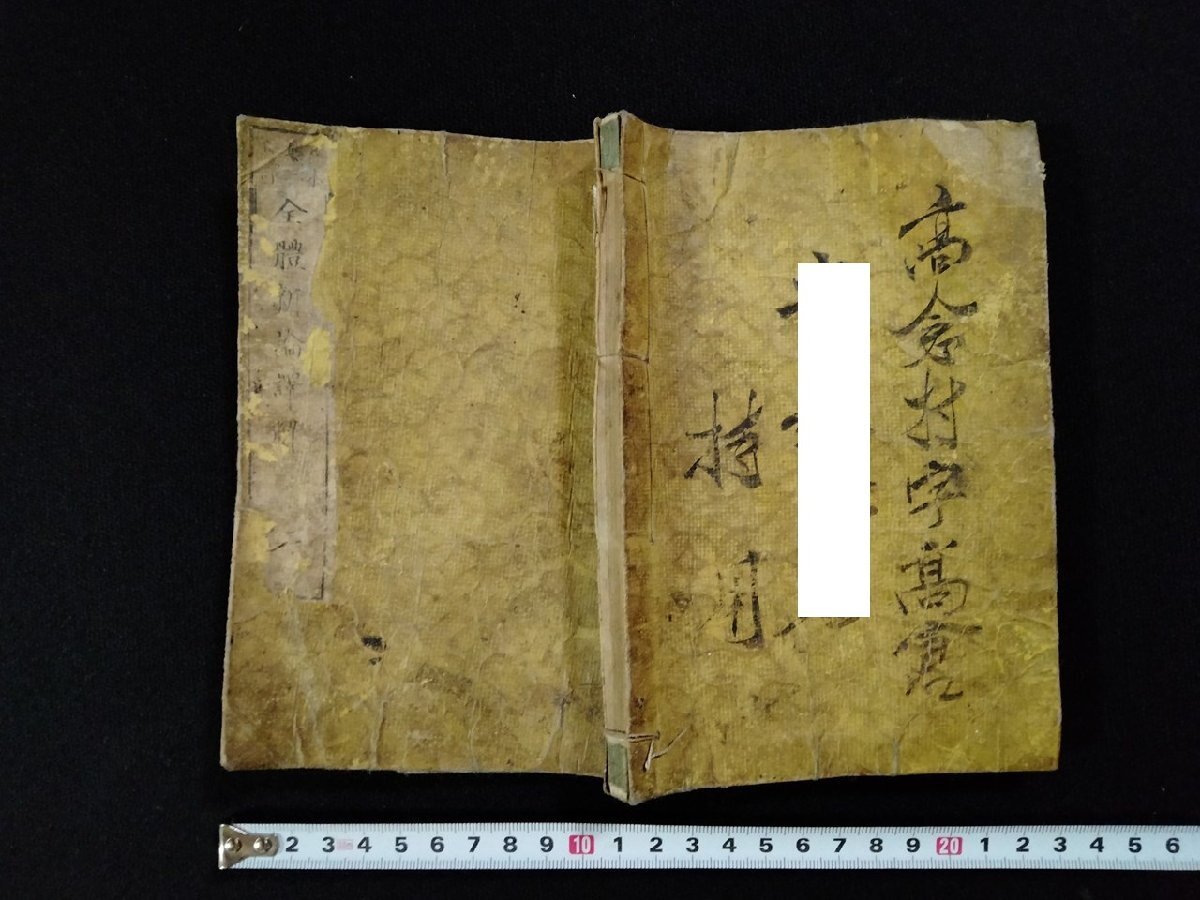 高倉村字髙倉
持用
全體新論譯解
2 3 4 5 6 7 8 9 10 1 2 3 4 5 6 7 8 9 20 1 2 3 4 5 6